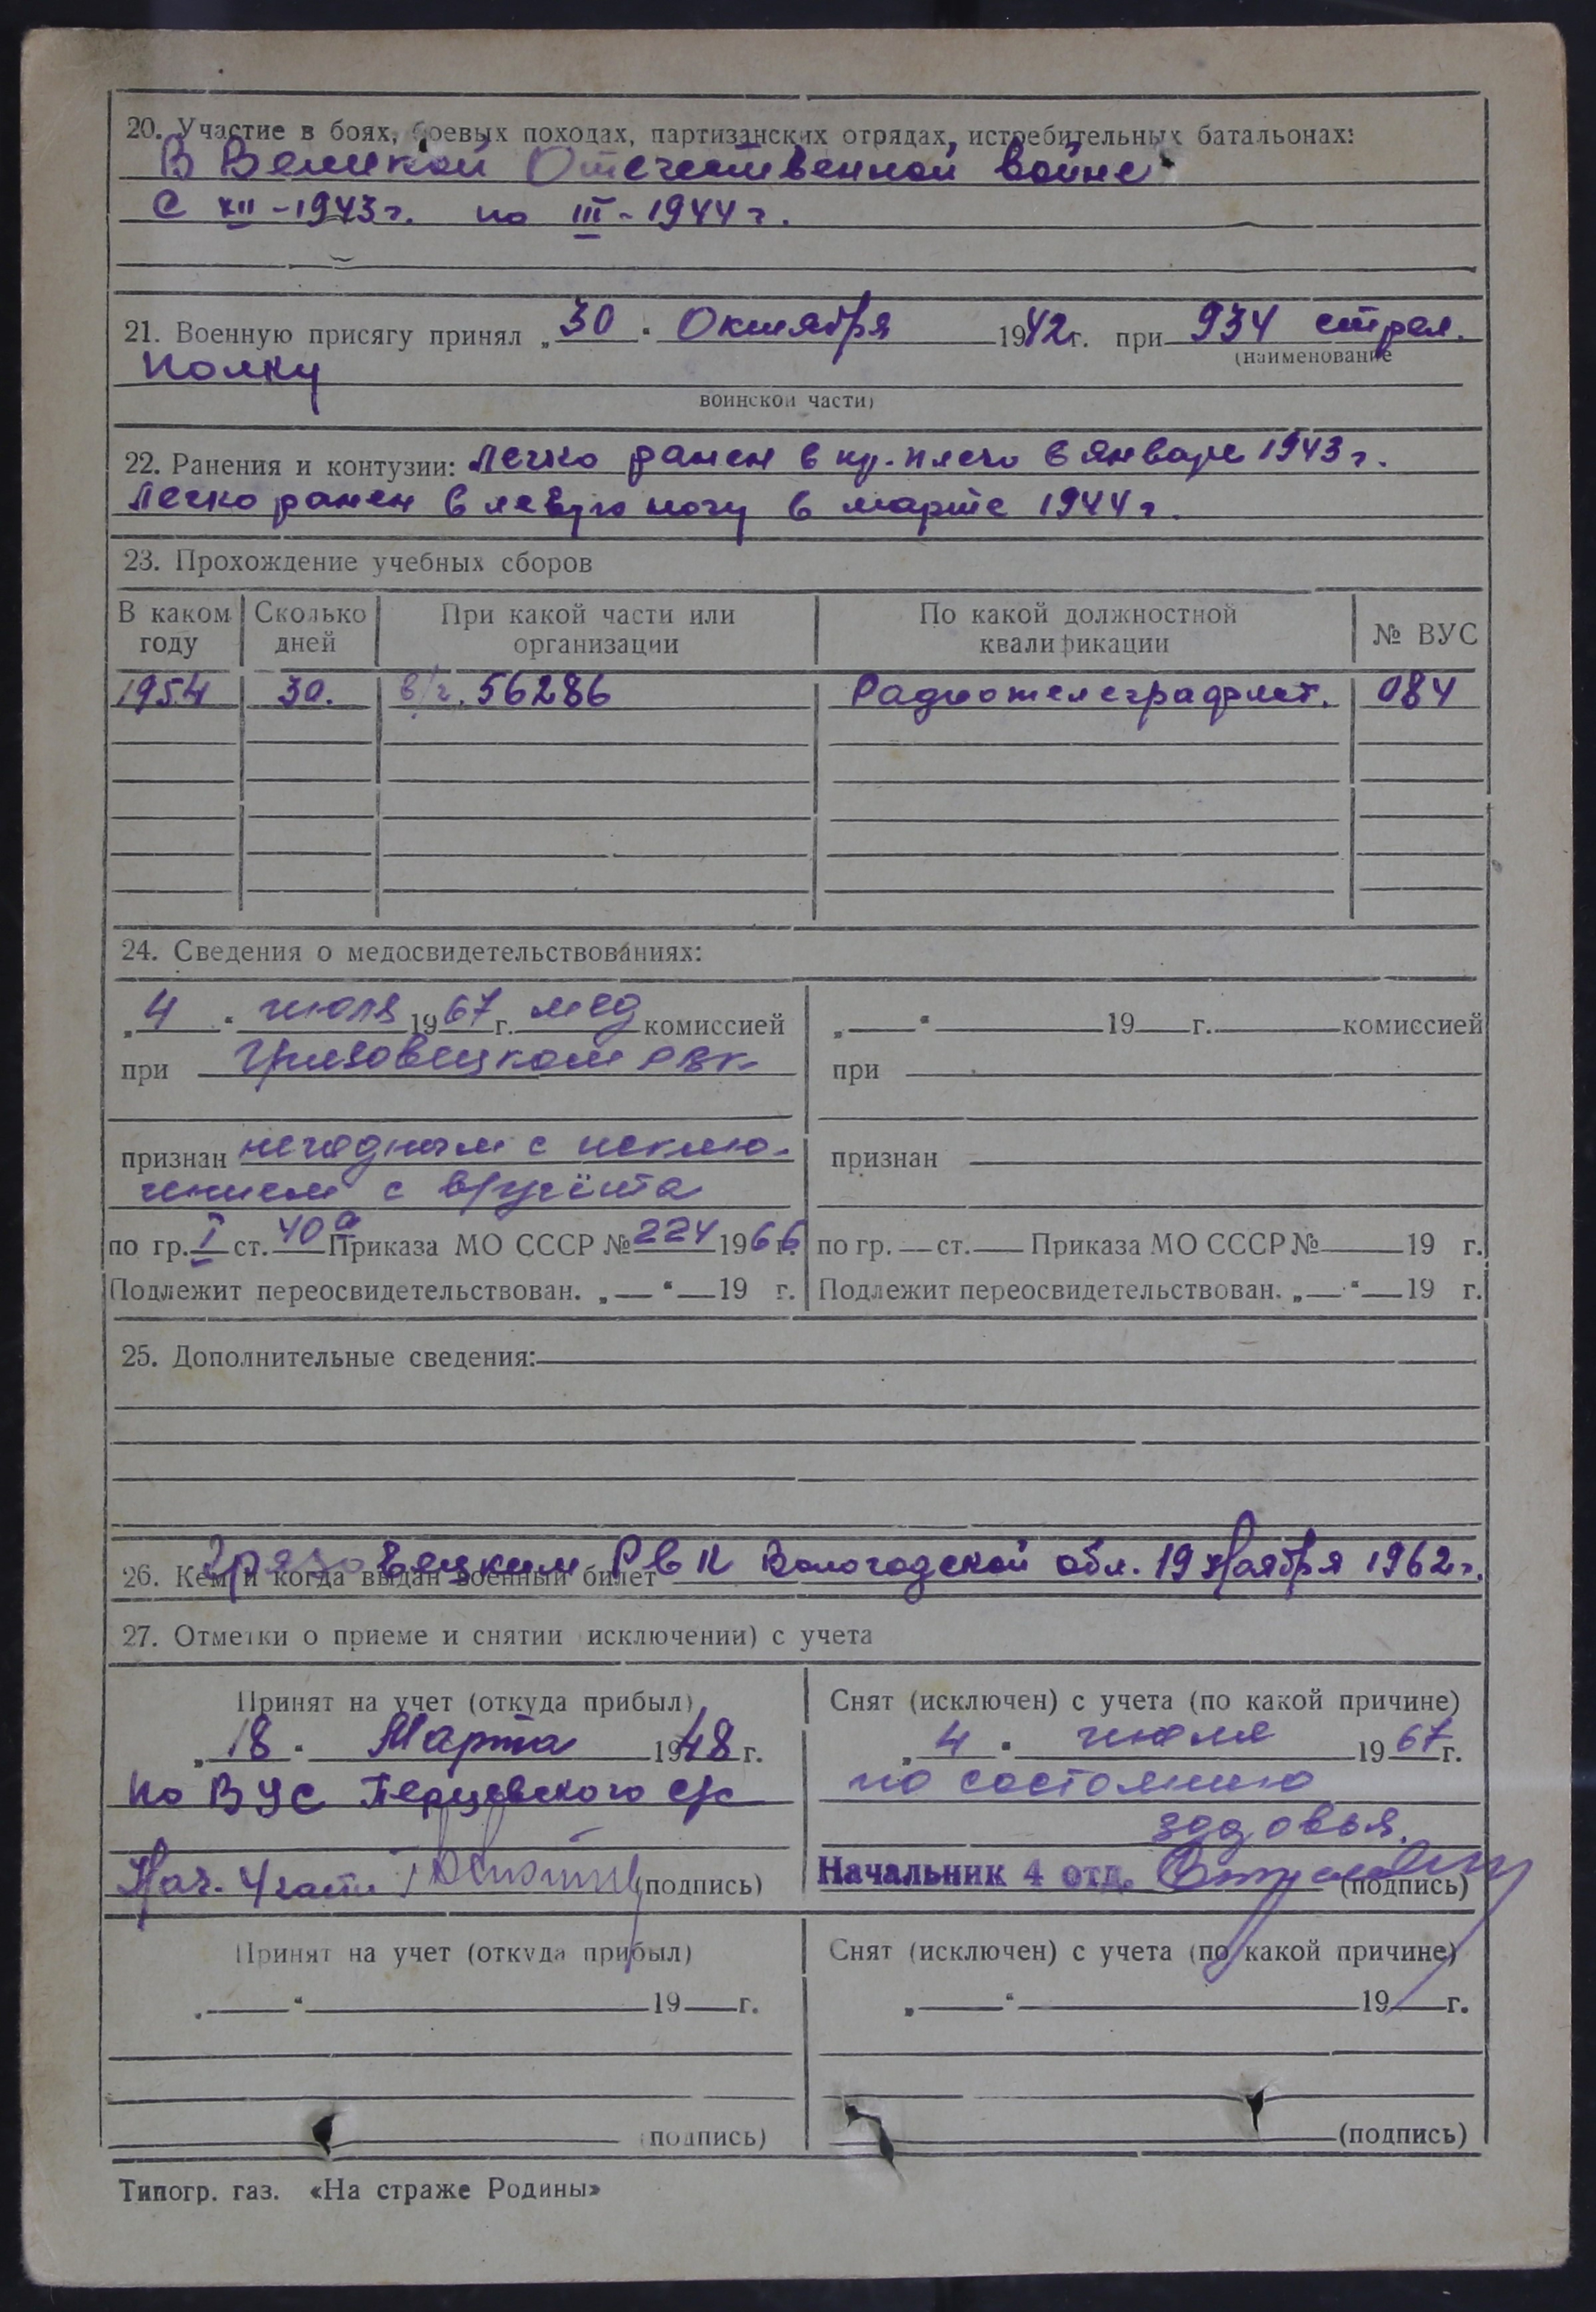 20. Участие в боях, боевых походах, партизанских отрядах, истребительных батальонах:
В Великой Отечественной войне
С XII - 1943 г. по III - 1944 г.
21. Военную присягу принял „30" Октября 1942 г. при 934 стрел.
(наименование
полку
воинской части)
22. Ранения и контузии: Легко ранен в пр. плечо в январе 1943 г.
Легко ранен в левую ногу в марте 1944 г.
23. Прохождение учебных сборов
В каком году Сколько дней При какой части или организации По какой должностной квалификации № ВУС
1954 30. в/ч. 56286 Радиотелеграфист. 084
24. Сведения о медосвидетельствованиях:
„4" июля 1967 г. мед комиссией „ " 19 г. комиссией
при Грязовецком РВК при
признан негодным с исклю- признан
чением с в/учёта
по гр. I ст. 40а Приказа МО СССР № 224 1966 г. по гр. ст. Приказа МО СССР № 19 г.
Подлежит переосвидетельствован. „ " 19 г. Подлежит переосвидетельствован. „ " 19 г.
25. Дополнительные сведения:
26. Кем и когда выдан военный билет Грязовецким РВК Вологодской обл. 19 Ноября 1962 г.
27. Отметки о приеме и снятии исключении) с учета
Принят на учет (откуда прибыл) Снят (исключен) с учета (по какой причине)
„18" Марта 1948 г. „4" июля 1967 г.
по ВУС Перцевского с/с по состоянию
здовья.
Нач. 4 части (подпись) Начальник 4 отд. (подпись)
Принят на учет (откуда прибыл) Снят (исключен) с учета (по какой причине)
„ " 19 г. „ " 19 г.
(подпись) (подпись)
Типогр. газ. «На страже Родины»